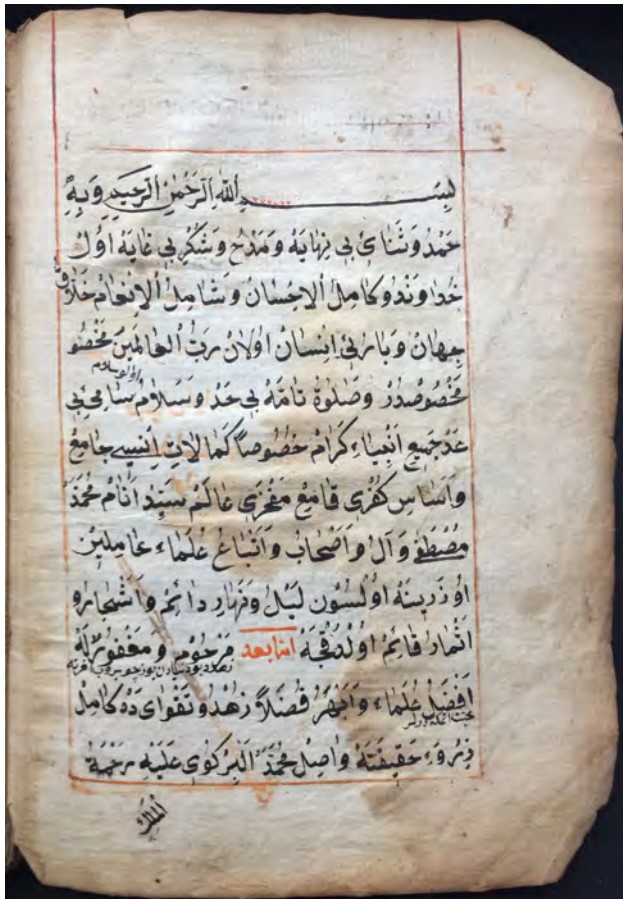 بسم الله الرحمن الرحيم وبه
حَمْدُ وَثَنَائِ بِى نِهَايَهْ وَمَدْحُ وَشُكْرِ بِى غَايَهْ اَوَّلْ
خُدَاوَنْدُ وكَامِلُ اْلاِحْسَانْ وَشَامِلُ اْلاِنْعَامْ خَلَّاقِ
جِهَانْ وَبَارِئِ اِنْسَانْ اَوْلَانْ رَبُّ الْعَالَمِينَ مَخْصُو
مَخْصُوصْدُرْ وَصَلَوةُ تَامَّهُ بِى حَدْ وَسَلَامِ سَامِئِ بِى
عَدْ جَمِيعِ اَنْبِيَاءِ كِرَامْ خُصُوصًا كَمَالَاتِ اُنْسِيَه جَامِعْ
وَاَسَاسِ كُفْرِى قَامِعْ مَفْخَرِ عَالَمْ سَيِّدِ اَنَامْ مُحَمَّدْ
مُصْطَفَى وَآلُ وَاَصْحَابُ وَاَتْبَاعُ عُلَمَاءِ عَامِلِينْ
اوُزَرِينَهْ اوُلْسُونْ لَيْلُ وَنَهَارِ دَائِمْ وَاَشْجَارُو
اَثْمَارُ قَائِمْ اوُلْدُقْجَهْ امّا بعد مَرْحُومْ وَمَغْفُورٌ لَهْ
اَفْضَلِ عُلَمَاءِ وَاَبْهَرُ فُضَلاً زُهْدُ وتَقْوَاى دَهْ كَامِلْ
ذِرْوَۀِ حَقِيقَتَهْ وَاصِلْ مُحَمَّدْ اَلْبِرْكَوِى عَلَيْهِ رَحْمَةُ
الْمَلِكِ